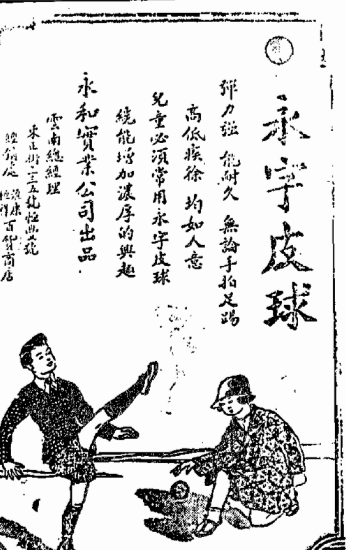 永字皮球
彈力强 能耐久 無論手拍足踢
高低疾徐 均如人意
兒童必須常用永字皮球
繞能增加濃厚的興趣
永和實業公司出品
雲南總經理
百貨商店